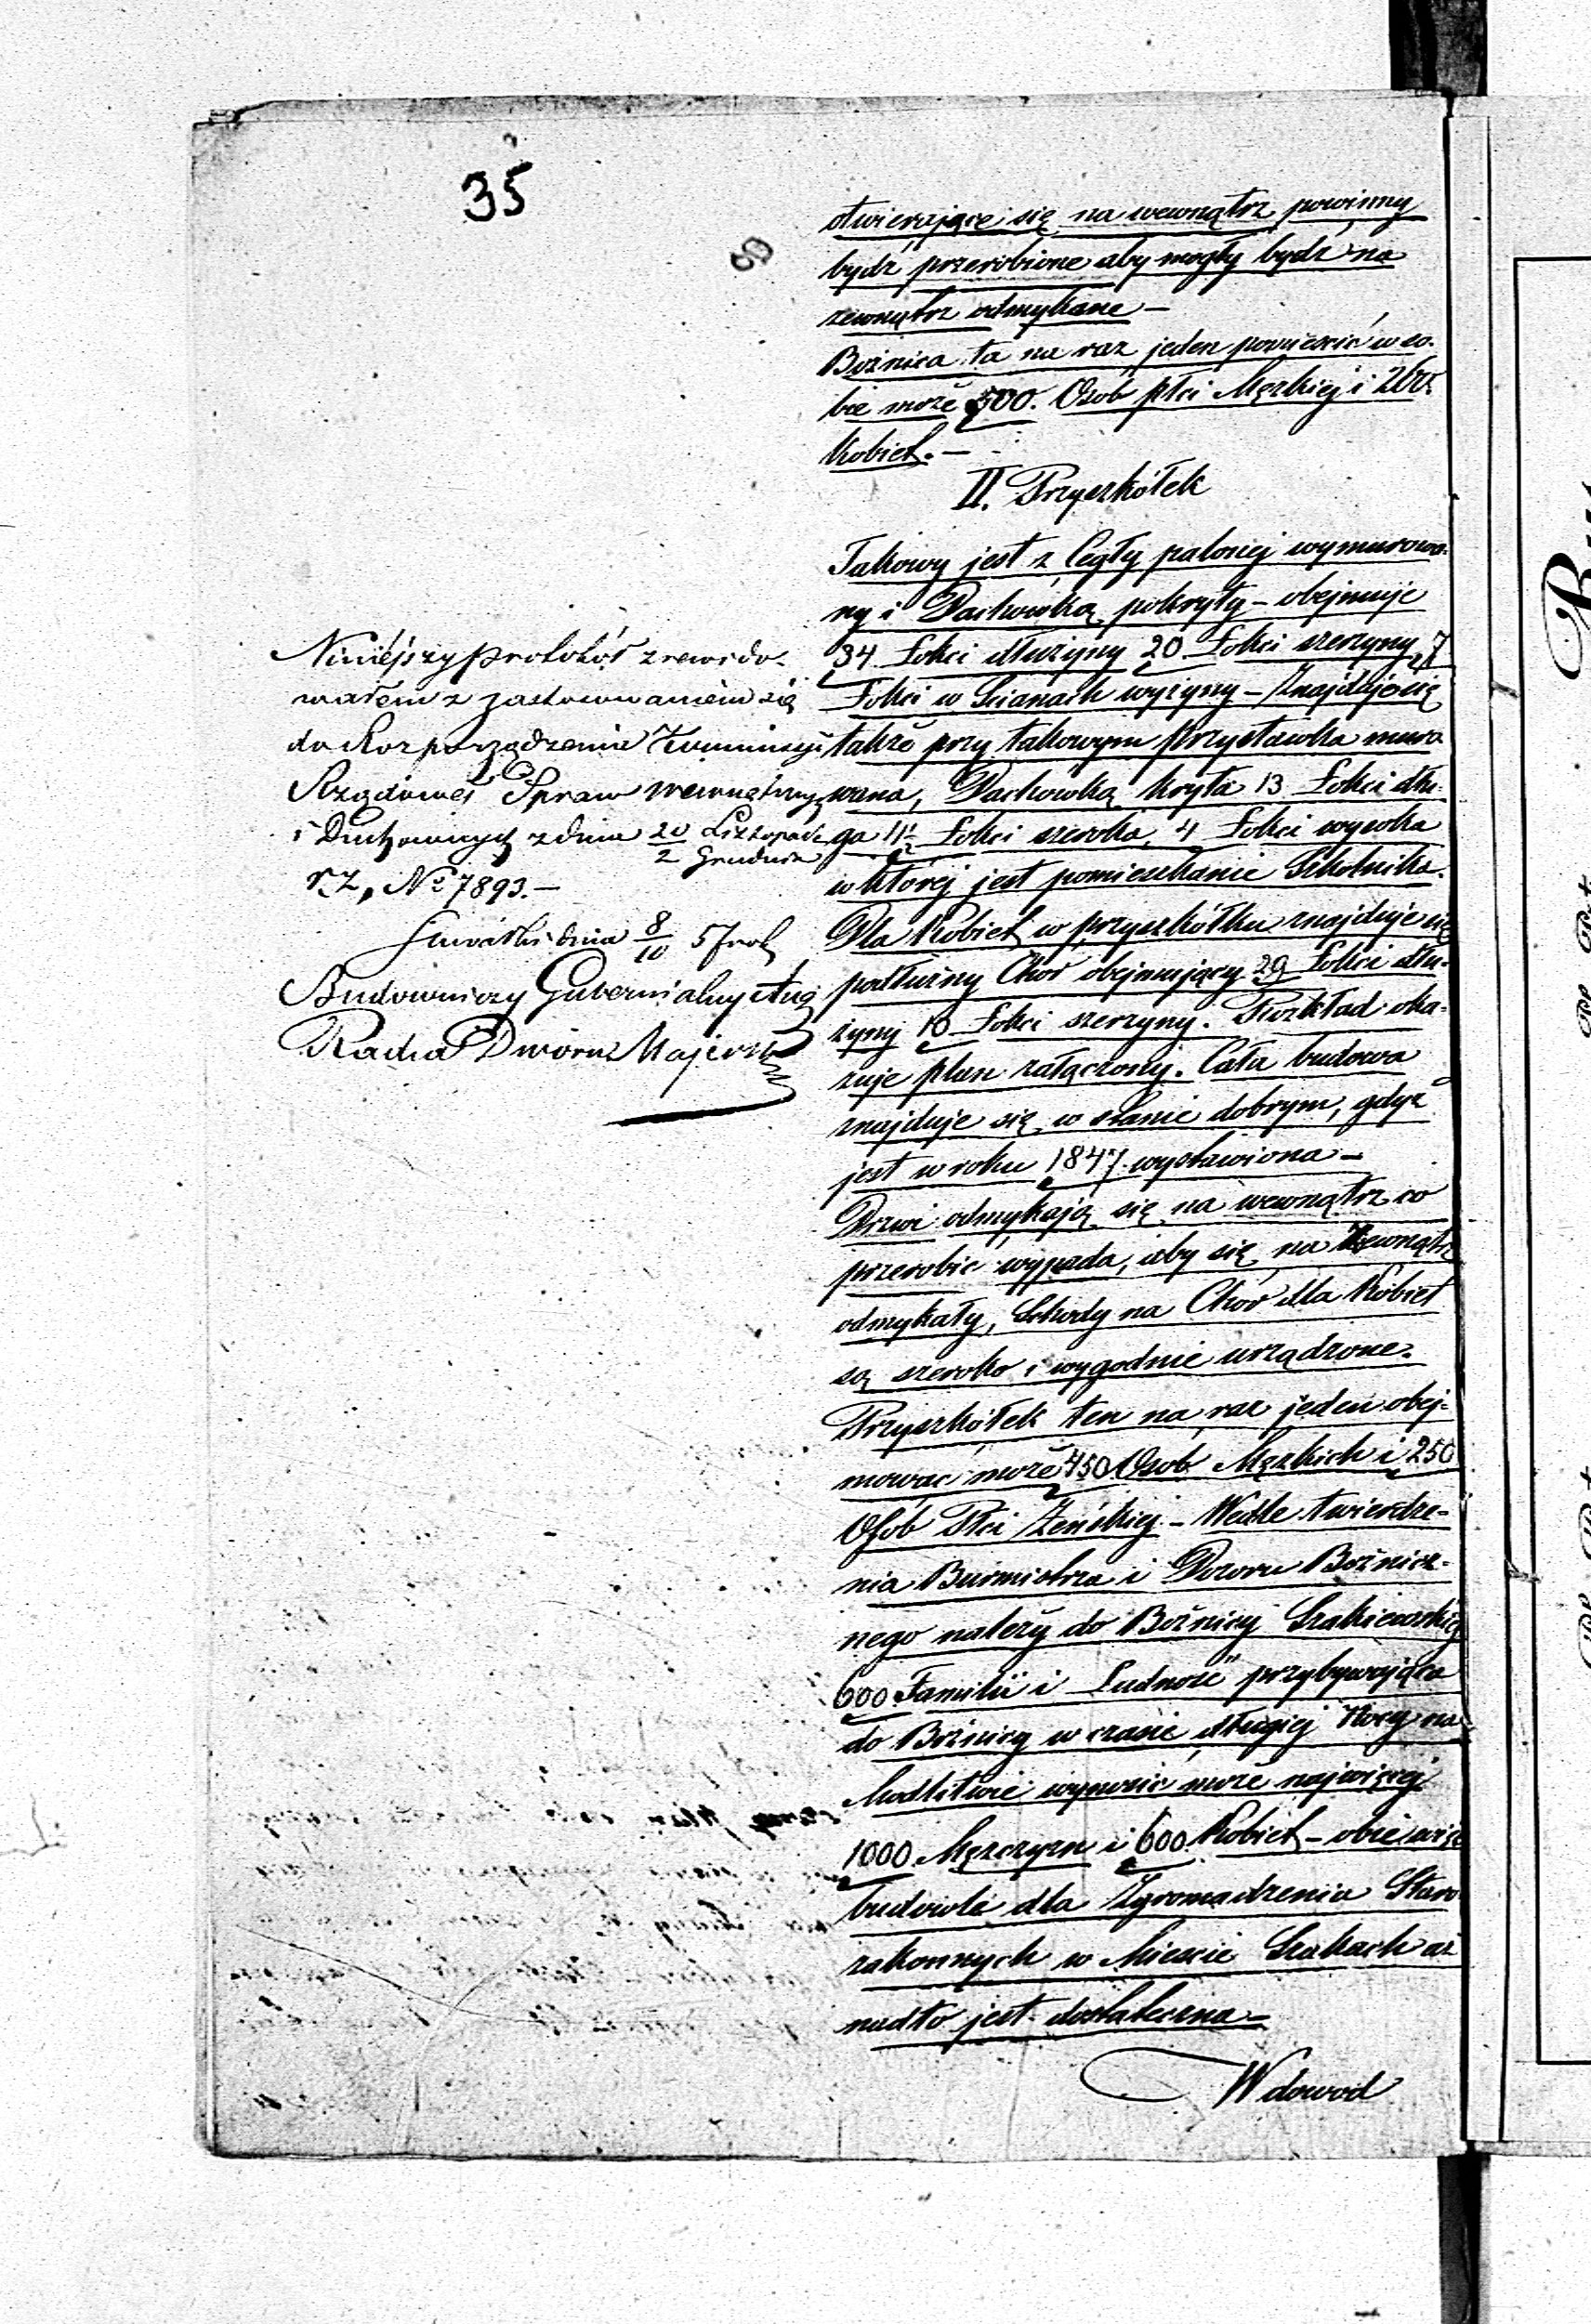 35
otwierające się na wewnątrz powinny
bydź przerobione aby mogły bydź na
zewnątrz odmykane —
Bożnica ta na raz jeden pomieścić w so-
bie może 500. Osób płci Męzkiej i
Kobiet. —
II. Przyszkółek
Takowy jest z Cegły palonej wymurowa-
ny i Dachówką pokryty — obejmuje
34 Łokci dłużyny 20 Łokci szerzyny 7
Łokci w Scianach wyżyny — Znajduje się
także przy takowym przystawka muro
wana, Dachowką kryta 13 Łokci dłu-
ga 11½ Łokci szeroka, 4 Łokci wysoka
w której jest pomieszkanie Szkolnika.
Dla Kobiet w przyszkółku znajduje się
podłużny Chór obejmujący 29 Łokci dłu-
żyny 10 Łokci szerzyny. Rozkład oka-
zuje plan załączony. Cała budowa
znajduje się w stanie dobrym, gdyż
jest w roku 1847 wystawiona —
Drzwi odmykają się na wewnątrz co
przerobić wypada, aby się na Zewnątrz
odmykały, Schody na Chór dla Kobiet
są szeroko i wygodnie urządzone.
Przyszkółek ten na raz jeden obej-
mować może 450 Osób Męzkich i 250
Osób Płci Żeńskiej. — Wedle twierdze-
nia Burmistrza i Dozoru Bożnicz-
nego należy do Bożnicy Szakiewskiej
600 Familii i Ludność przybywająca
do Bożnicy w czasie długiej Nocy na
Modlitwie wynosić może najwięcej
1000 Męzczyzn i 600 Kobiet — obie więc
budowle dla Zgromadzenia Staro
zakonnych w Mieście Szakach aż
nadto jest dostateczna —
W dowod
Niniejszy protokół zrewido-
wałem z zastosowaniem się
do Rozporządzenia Kommissyi
Rządowej Spraw wewnętrznych
i Duchownych z dnia 20 Listopada
2 Grudnia
r.z. № 7893. —
Suwałki dnia 8/10 57 rok
Budowniczy Gubernialny Aug
Radca Dworu Majerski